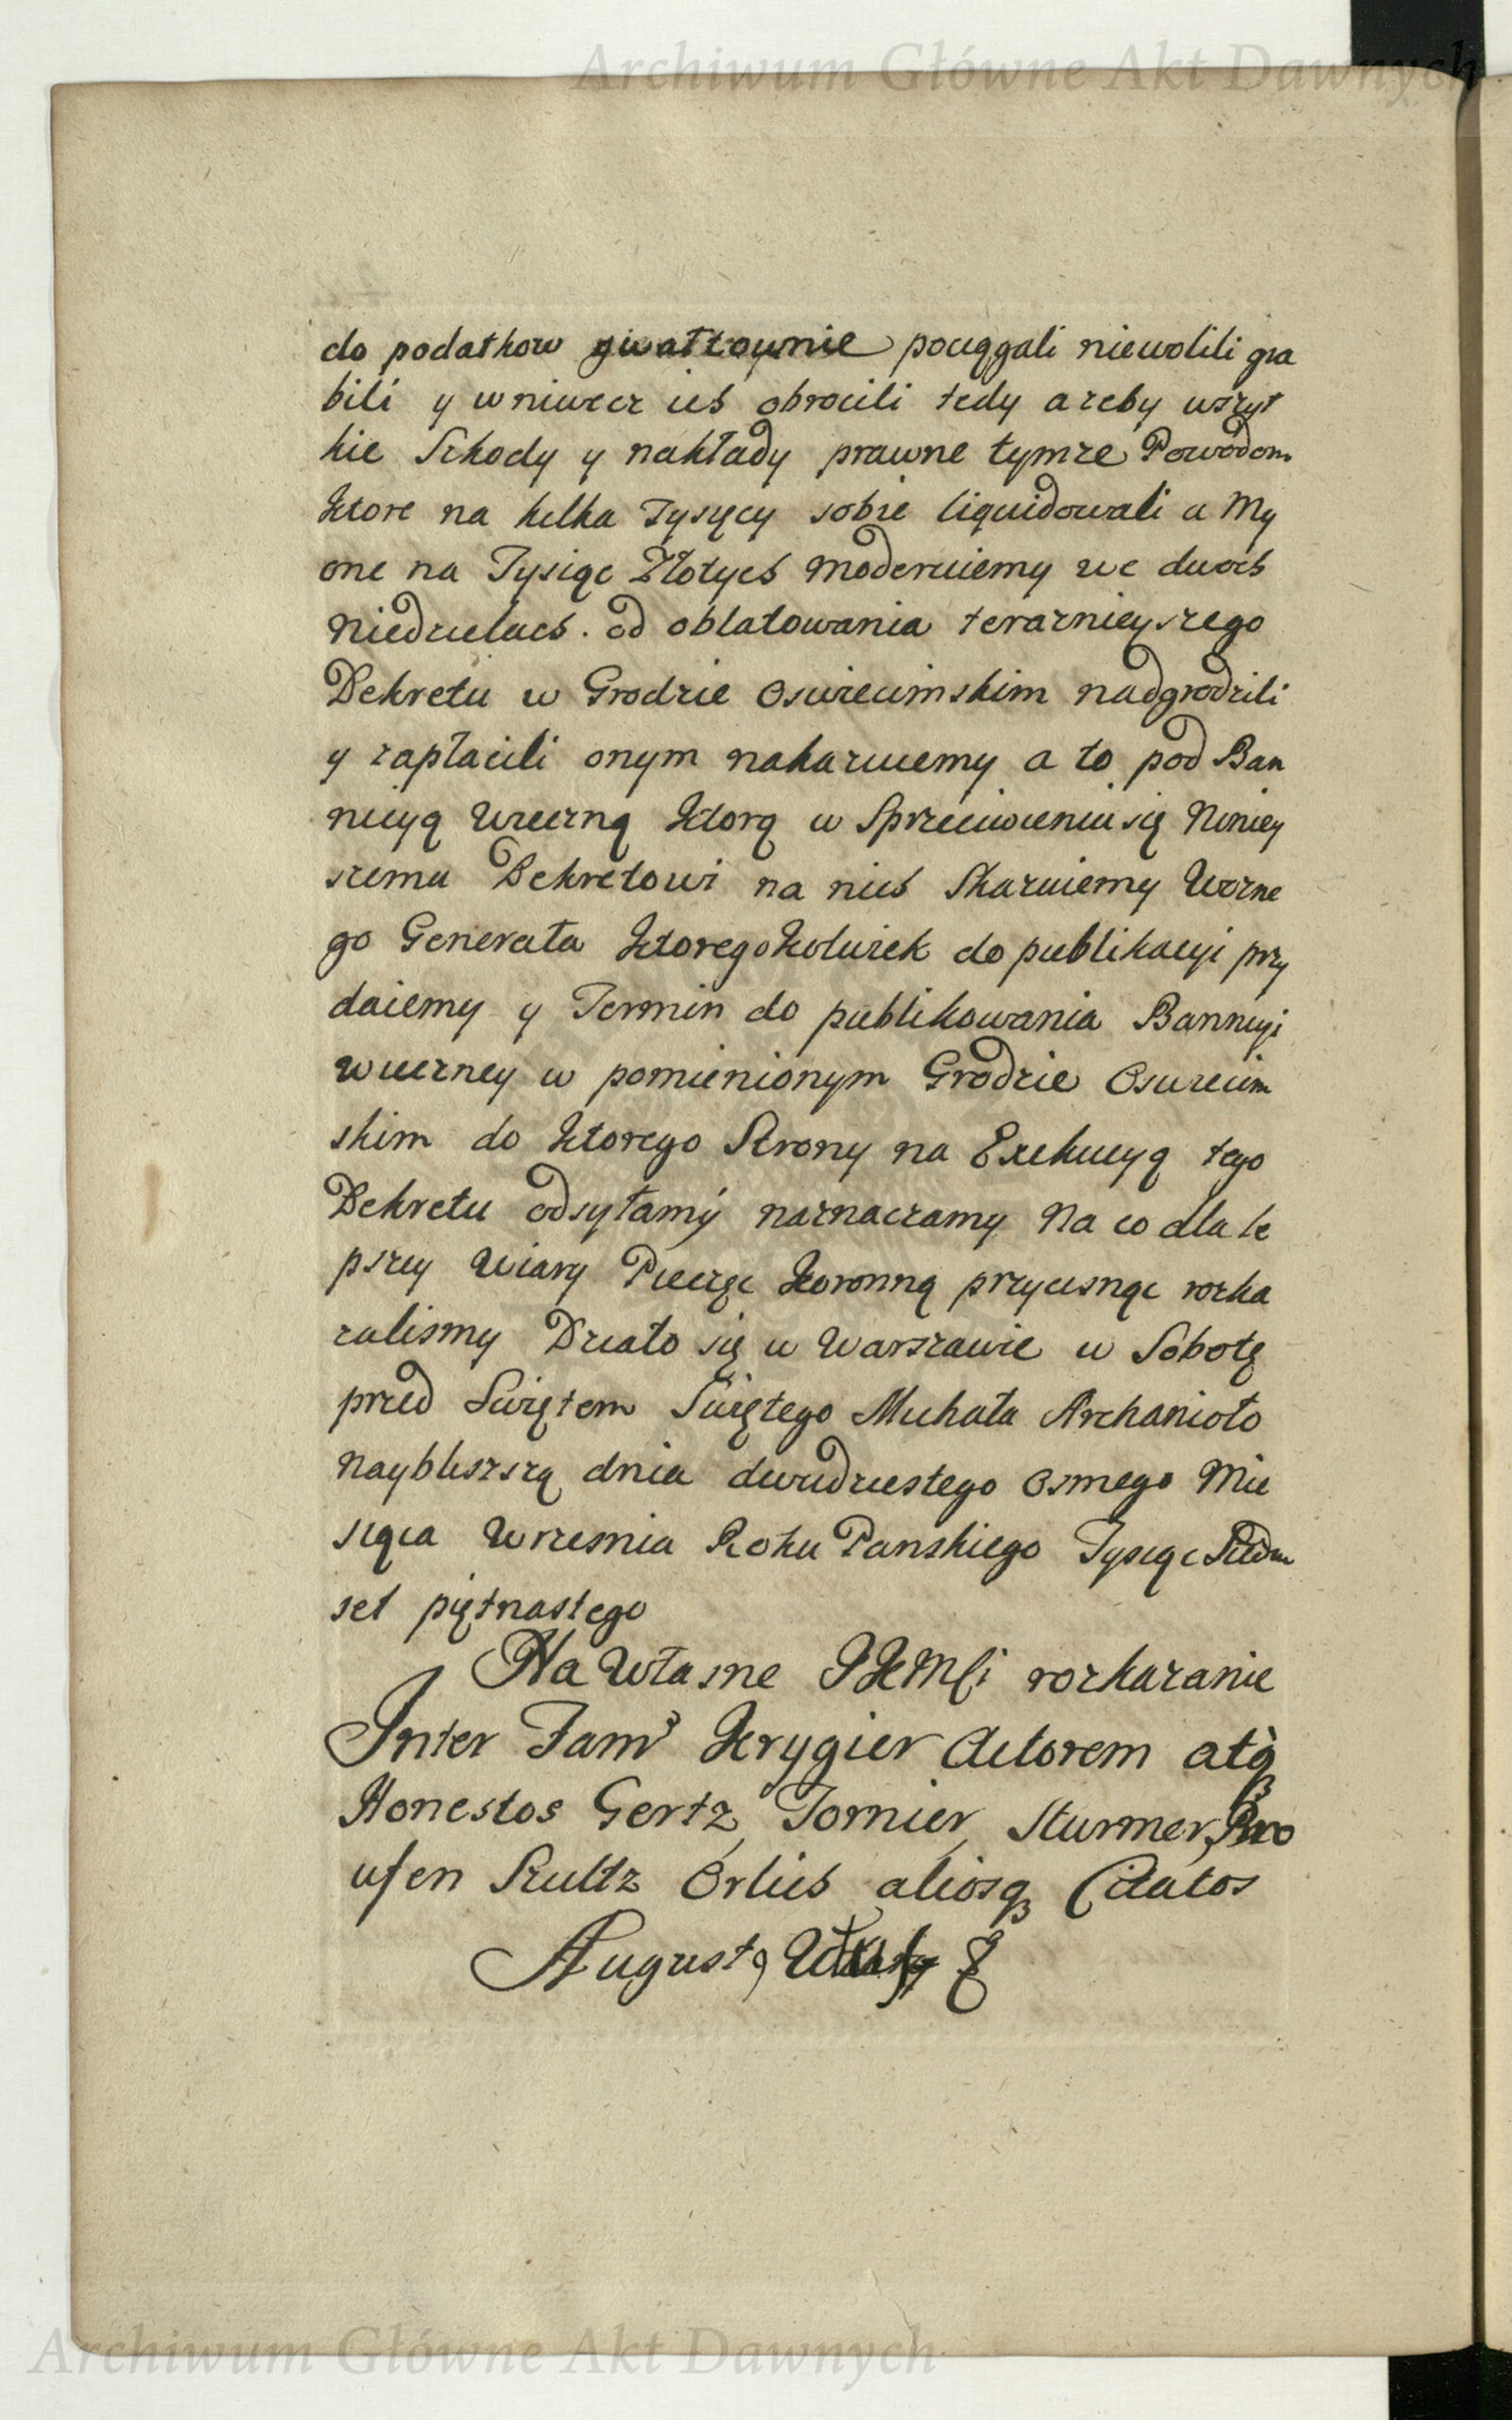 Archiwum Główne Akt Dawnych
do podatkow gwałtownie pociągali niewolili gra
bili y wniwecz ich obrocili tedy azeby wszyt
kie Szkody y nakłady prawne tymze Powodom
ktore na kilka Tysięcy sobie liquidowali a My
one na Tysiąc Złotych moderuiemy we dwoch
Niedzielach. od oblatowania teraznieyszego
Dekretu w Grodzie Oswiecimskim nadgrodzili
y zapłacili onym nakazuiemy a to pod Ban
nicyą Wieczną ktorą w Sprzeciwieniu się Niniey
szemu Dekretowi na nich Skazuiemy Wozne
go Generała ktoregokolwiek do publikacyi przy
daiemy y Termin do publikowania Bannicyi
wieczney w pomienionym Grodzie Oswiecim
skim do ktorego Strony na Exekucyą tego
Dekretu odsyłamy naznaczamy Na co dla le
pszey wiary Pieczęc koronną przycisnąc rozka
zalismy Działo się w Warszawie w Sobotę
przed Swiętem Swiętego Michała Archanioło
Nayblisszszą dnia dwudziestego Osmego Mie
siąca Wrzesnia Roku Panskiego Tysiąc Siedm
set piętnastego
Na Własne JKMſci rozkazanie
Inter Fam Krygier Actorem atq
Honestos Gertz, Tornier, Sturmer, Bro
uſen Szultz Orlich aliosq Citatos
August
Archiwum Główne Akt Dawnych